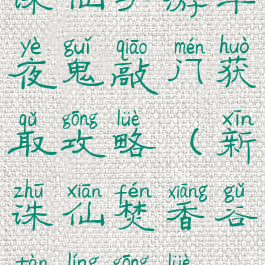 yè guǐ qiāo mén huò
夜鬼敲门获
qǔ gōng lüè xīn
取攻略（新
zhū xiān fén xiāng gǔ
诛仙焚香谷